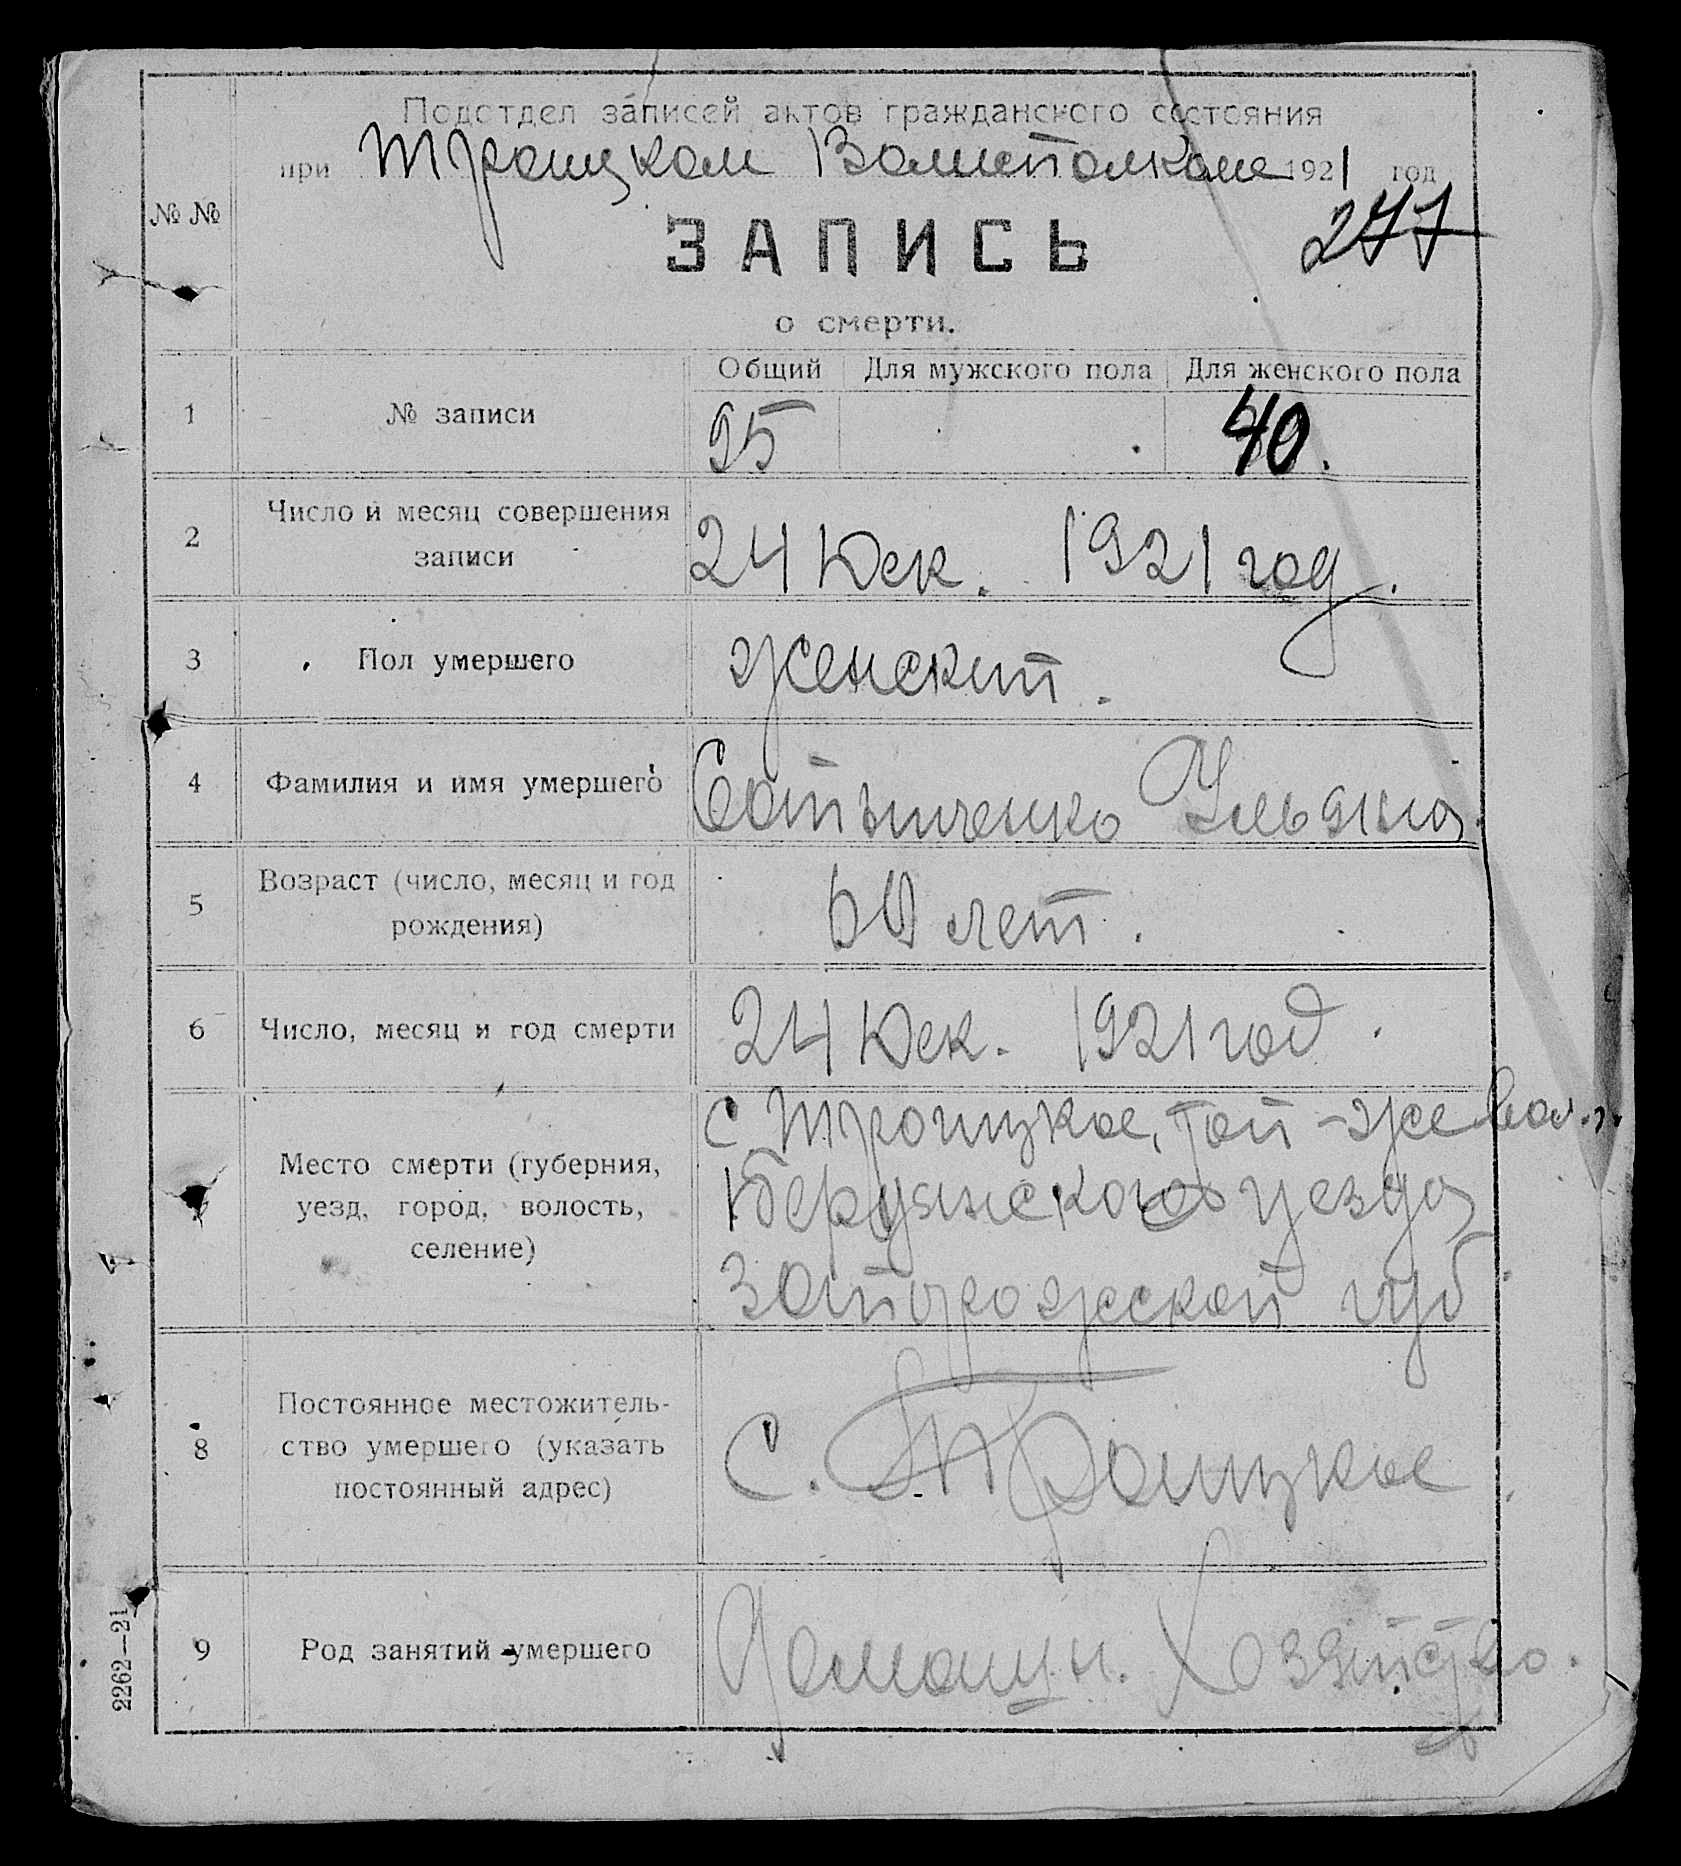 Подотдел записей актов гражданского состояния
при Троицком Волисполкоме 1921 год
№ №
277
ЗАПИСЬ
о смерти.
Общий Для мужского пола Для женского пола
1 № записи 95 40.
2 Число и месяц совершения записи 24 Дек. 1921 год.
3 Пол умершего женский.
4 Фамилия и имя умершего Ульяна
5 Возраст (число, месяц и год рождения) 60 лет.
6 Число, месяц и год смерти 24 Дек. 1921 год.
Место смерти (губерния, уезд, город, волость, селение) с Троицкое, той-же вол.
Бердянского уезда
Запорожской губ
8 Постоянное местожитель-
ство умершего (указать
постоянный адрес) с. Троицкое
9 Род занятий умершего Домашн. Хозяйство.
2262—21